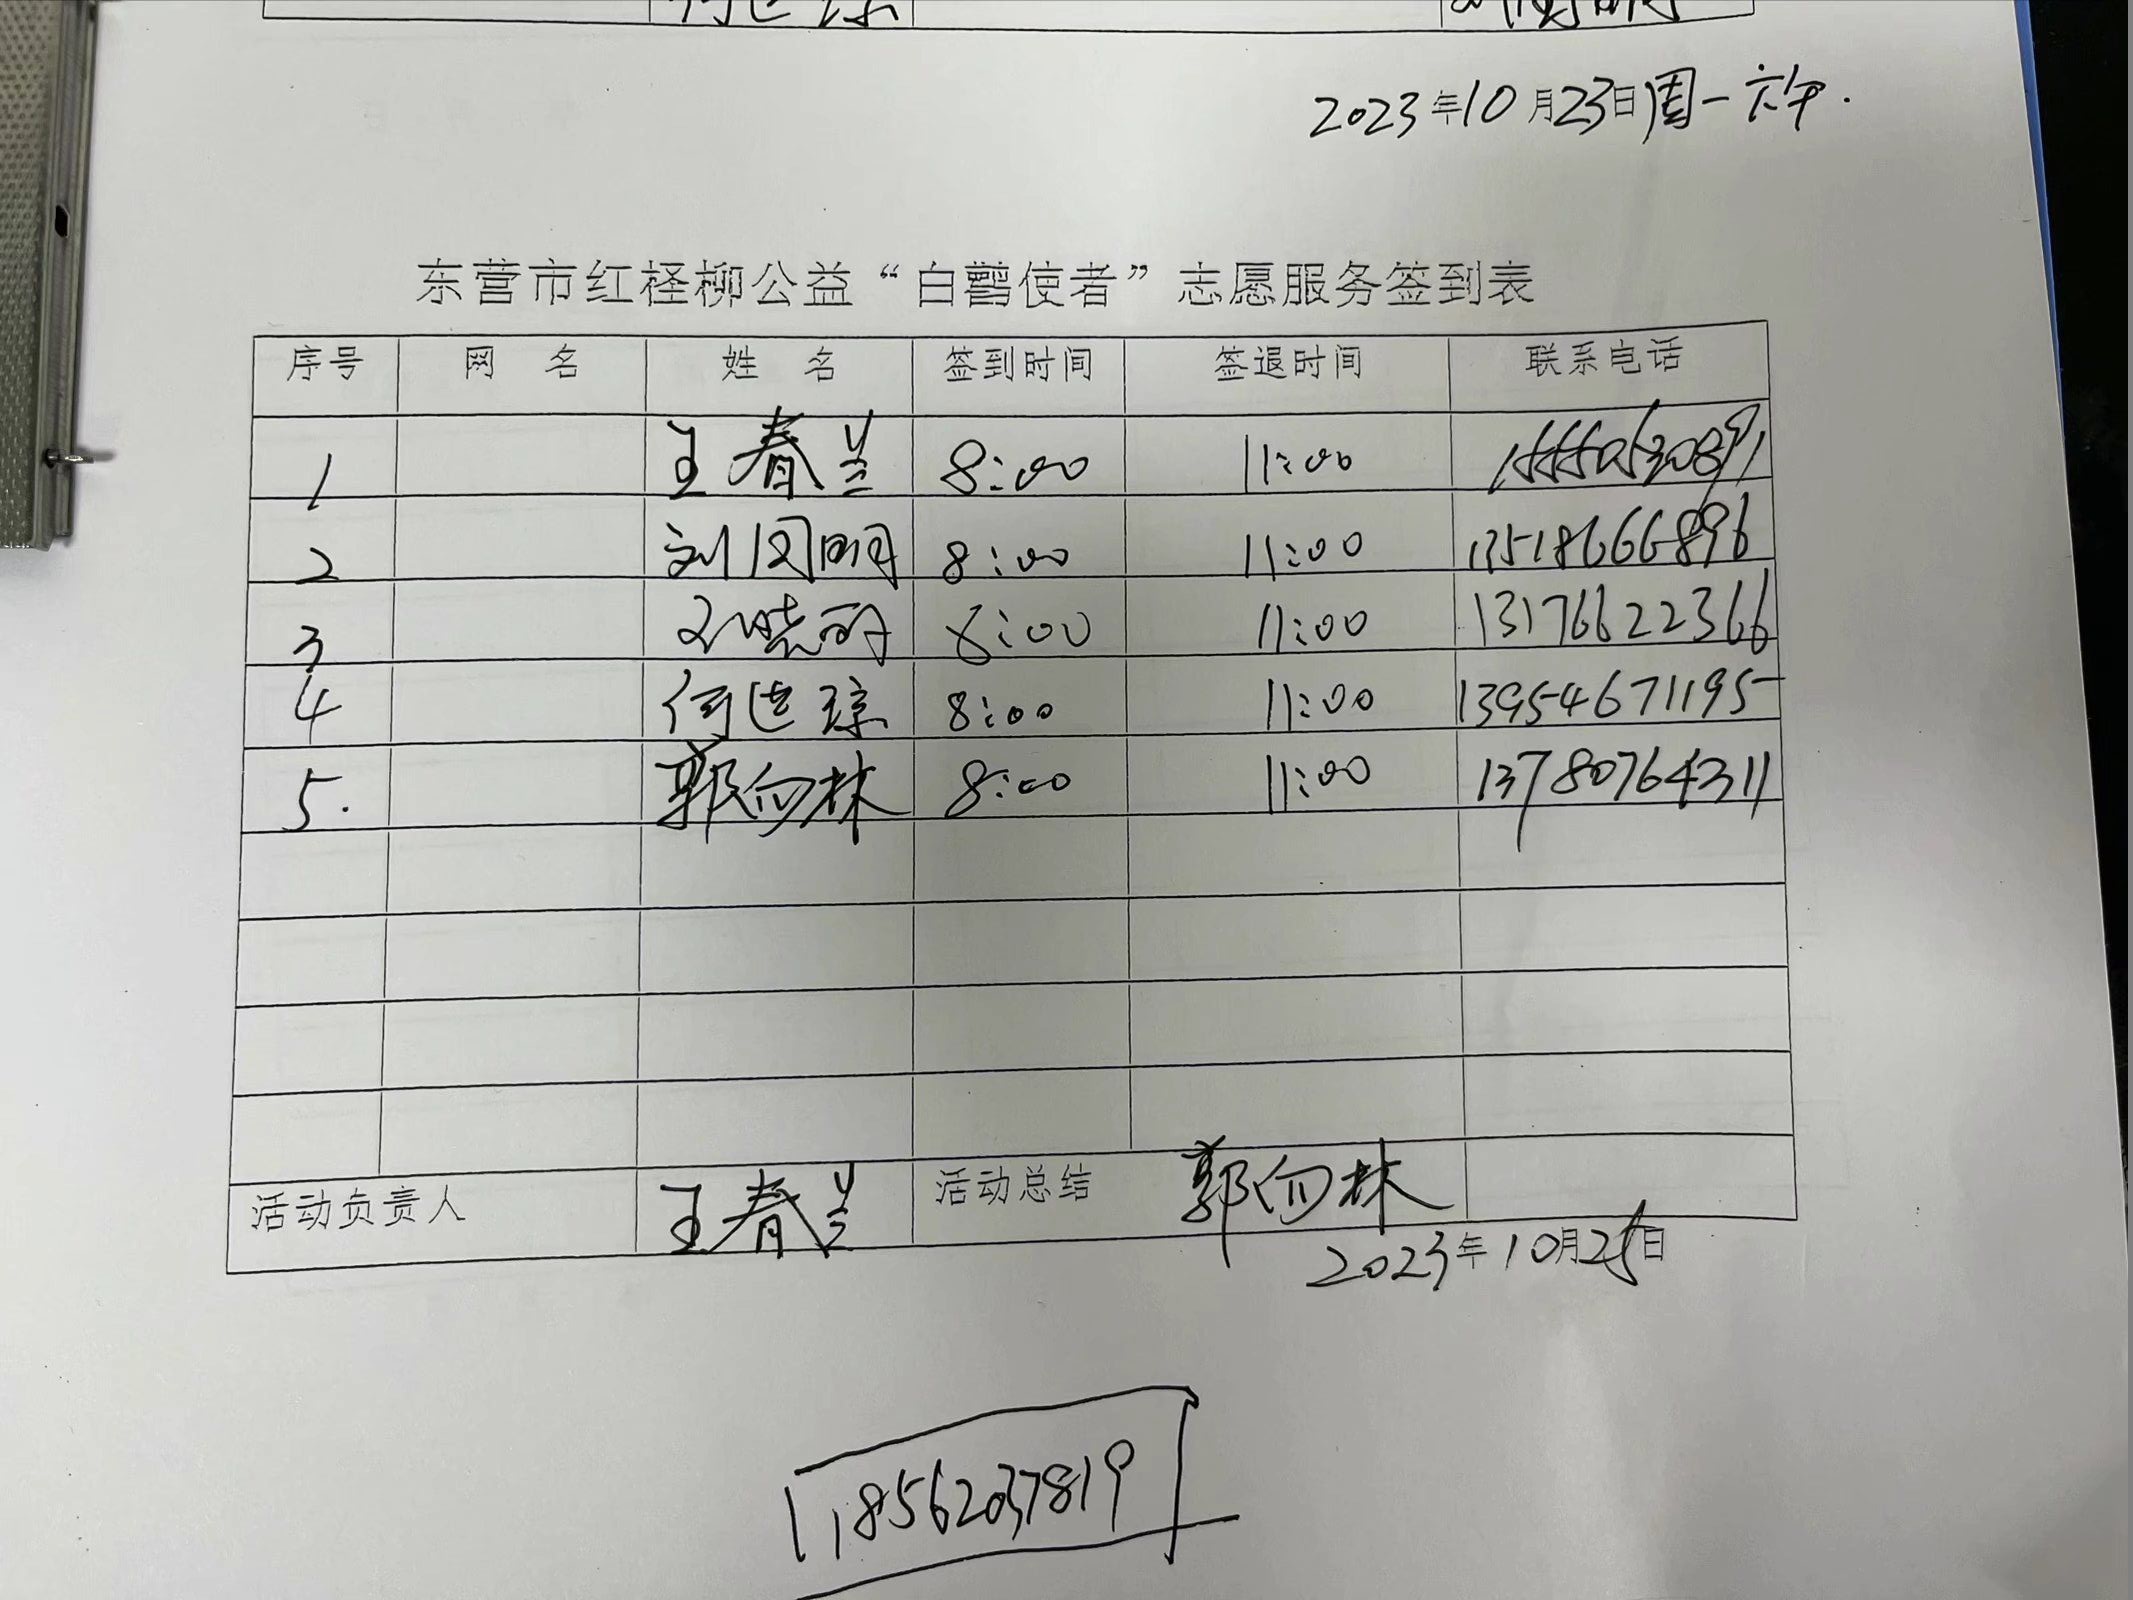 2023年10月23日周一下午.
东营市红柽柳公益“白鹳使者”志愿服务签到表
序号 网 名 姓 名 签到时间 签退时间 联系电话
1 王春兰 8:00 11:00
2 刘国明 8:00 11:00 13518666896
3 刘晓丽 8:00 11:00 13176622366
4 何世琼 8:00 11:00 13954671195
5. 郭向林 8:00 11:00 13780764311
活动负责人 王春兰 活动总结 郭向林
2023年10月25日
18562037819